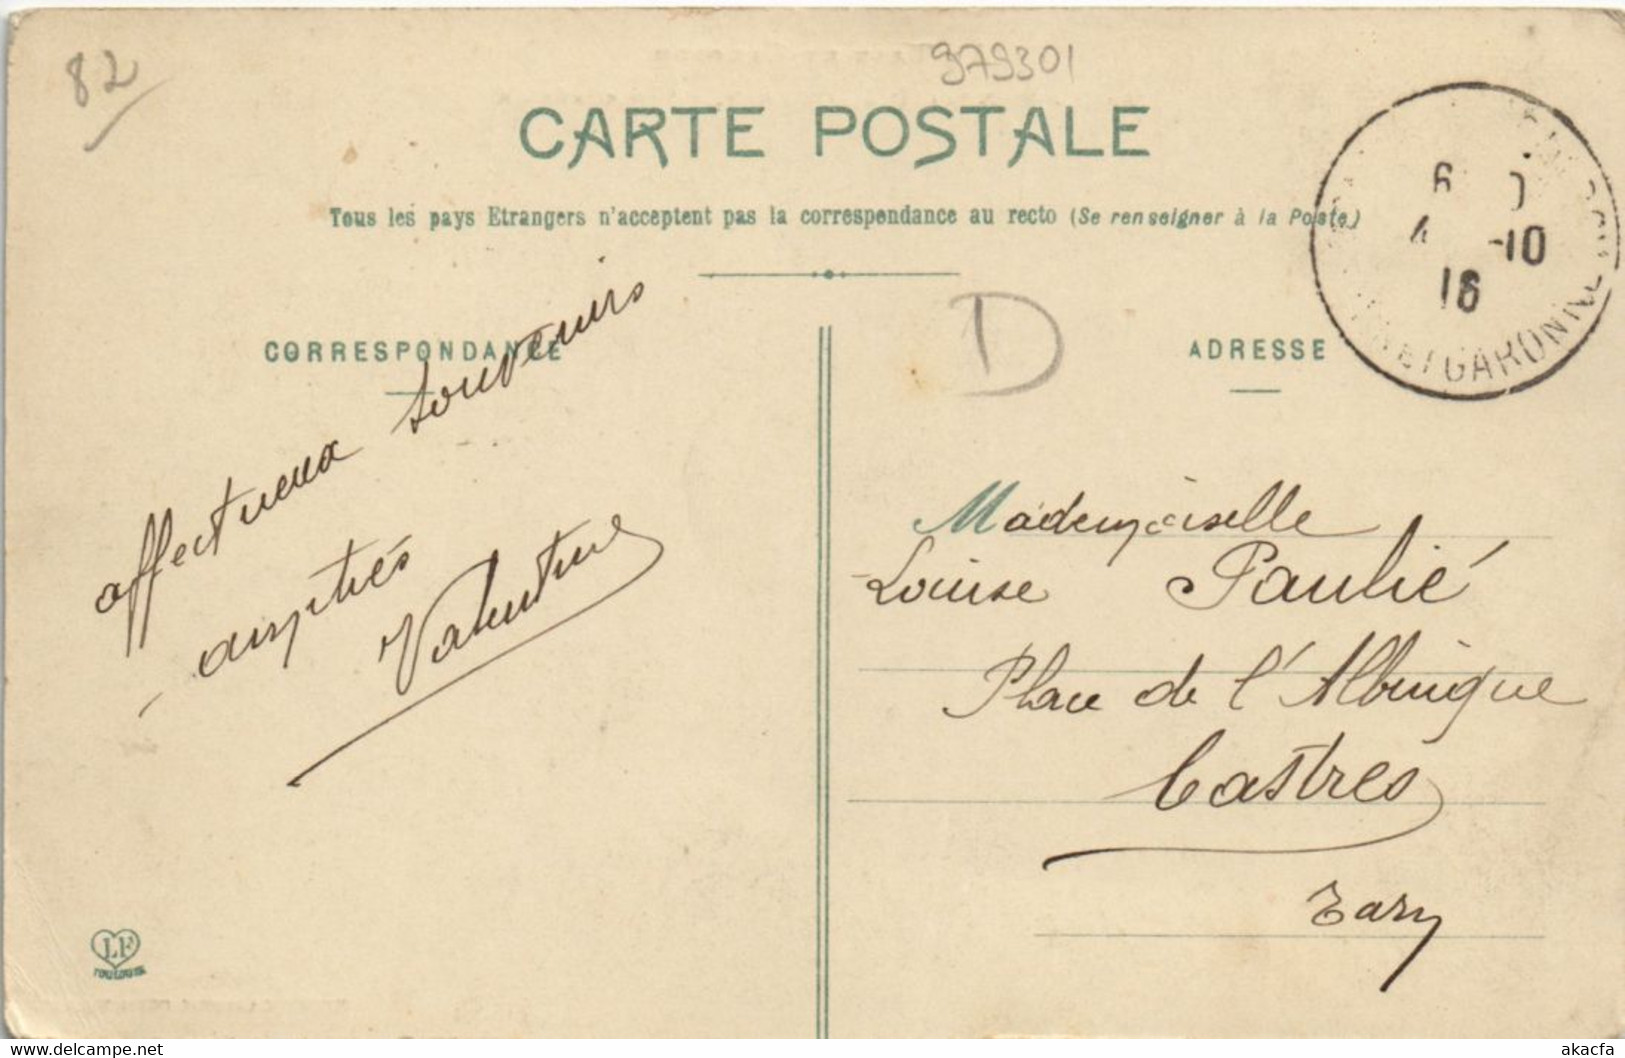 82
979301
CARTE POSTALE
Tous les pays Etrangers n'acceptent pas la correspondance au recto (Se renseigner à la Poste)
CORRESPONDANCE
ADRESSE
D
6
4 -10
16
ET GARONNE
affectueux souvenirs
amitiés
Valentine
Mademoiselle
Louise Paulié
Place de l'Albinque
Castres
Tarn
LF
TOULOUSE
www.delcampe.net
akacfa